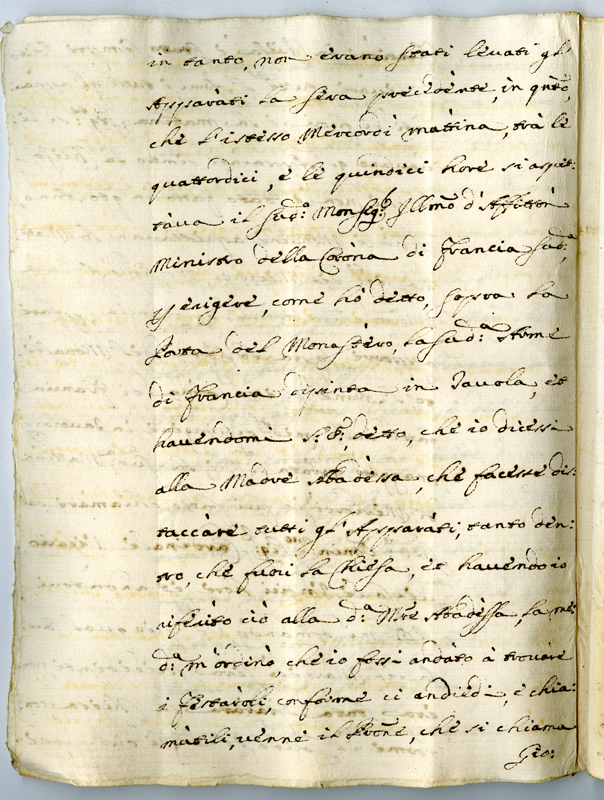 in tanto, non erano stati levati gl'
Apparati la sera precedente, in qnto,
che l'istesso Mercordì mattina, trà le
quattordici, e le quindici hore si aspet:
tàva il sud.º Monsig.r Illmo d'
Ministro della Coròna di Francia sud.ª,
erigere, come hò detto, sopra la
Porta del Monastèro, la sud.ª Arme
di Francia dipinta in Tavola, et
havendomi detto, che io dicessi
alla Madre Abadessa, che facesse dis:
taccàre tutti gl'Apparàti, tanto den:
tro, che fuori la Chiesa, et havendo io
riferito ciò alla d.ª Mre Abadèssa, la me:
d.ª m'ordinò, che io fossi andàto à trovàre
i Festaroli, conforme ci andiedi, e chia:
màtili, venne il Prone, che si chiama
Gio: